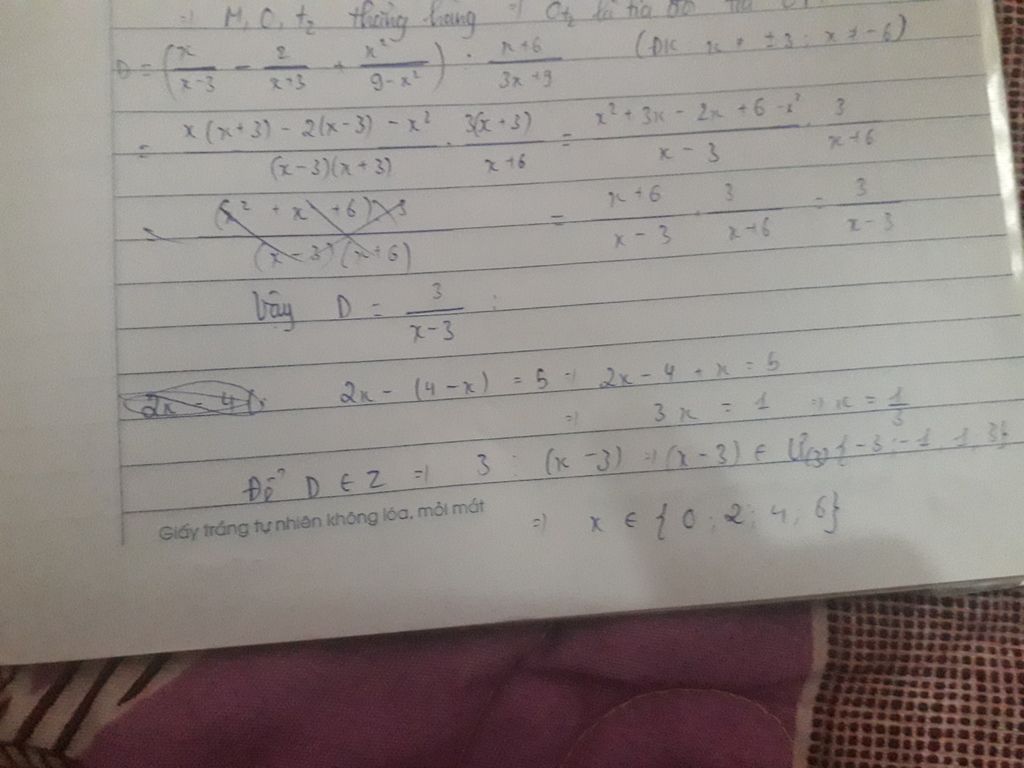 =) M, O, t₂ thẳng hàng =) Ot₂ là tia đối tia
D = (x/(x-3) - 2/(x+3) + x²/(9-x²)) : (x+6)/(3x+9) (ĐK x ≠ ±3 ; x ≠ -6)
= (x(x+3) - 2(x-3) - x²)/((x-3)(x+3)) . 3(x+3)/(x+6) = (x² + 3x - 2x + 6 - x²)/(x-3) . 3/(x+6)
= (x+6)/(x-3) . 3/(x+6) = 3/(x-3)
Vậy D = 3/(x-3) ;
2x - (4-x) = 5 =) 2x - 4 + x = 5
=) 3x = 1 =) x = 1/3
Để D ∈ Z =) 3 ⋮ (x-3) =) (x-3) ∈ Ư(3) {-3; -1, 1, 3}
=) x ∈ {0; 2; 4, 6}
Giấy trắng tự nhiên không lóa, mỏi mắt